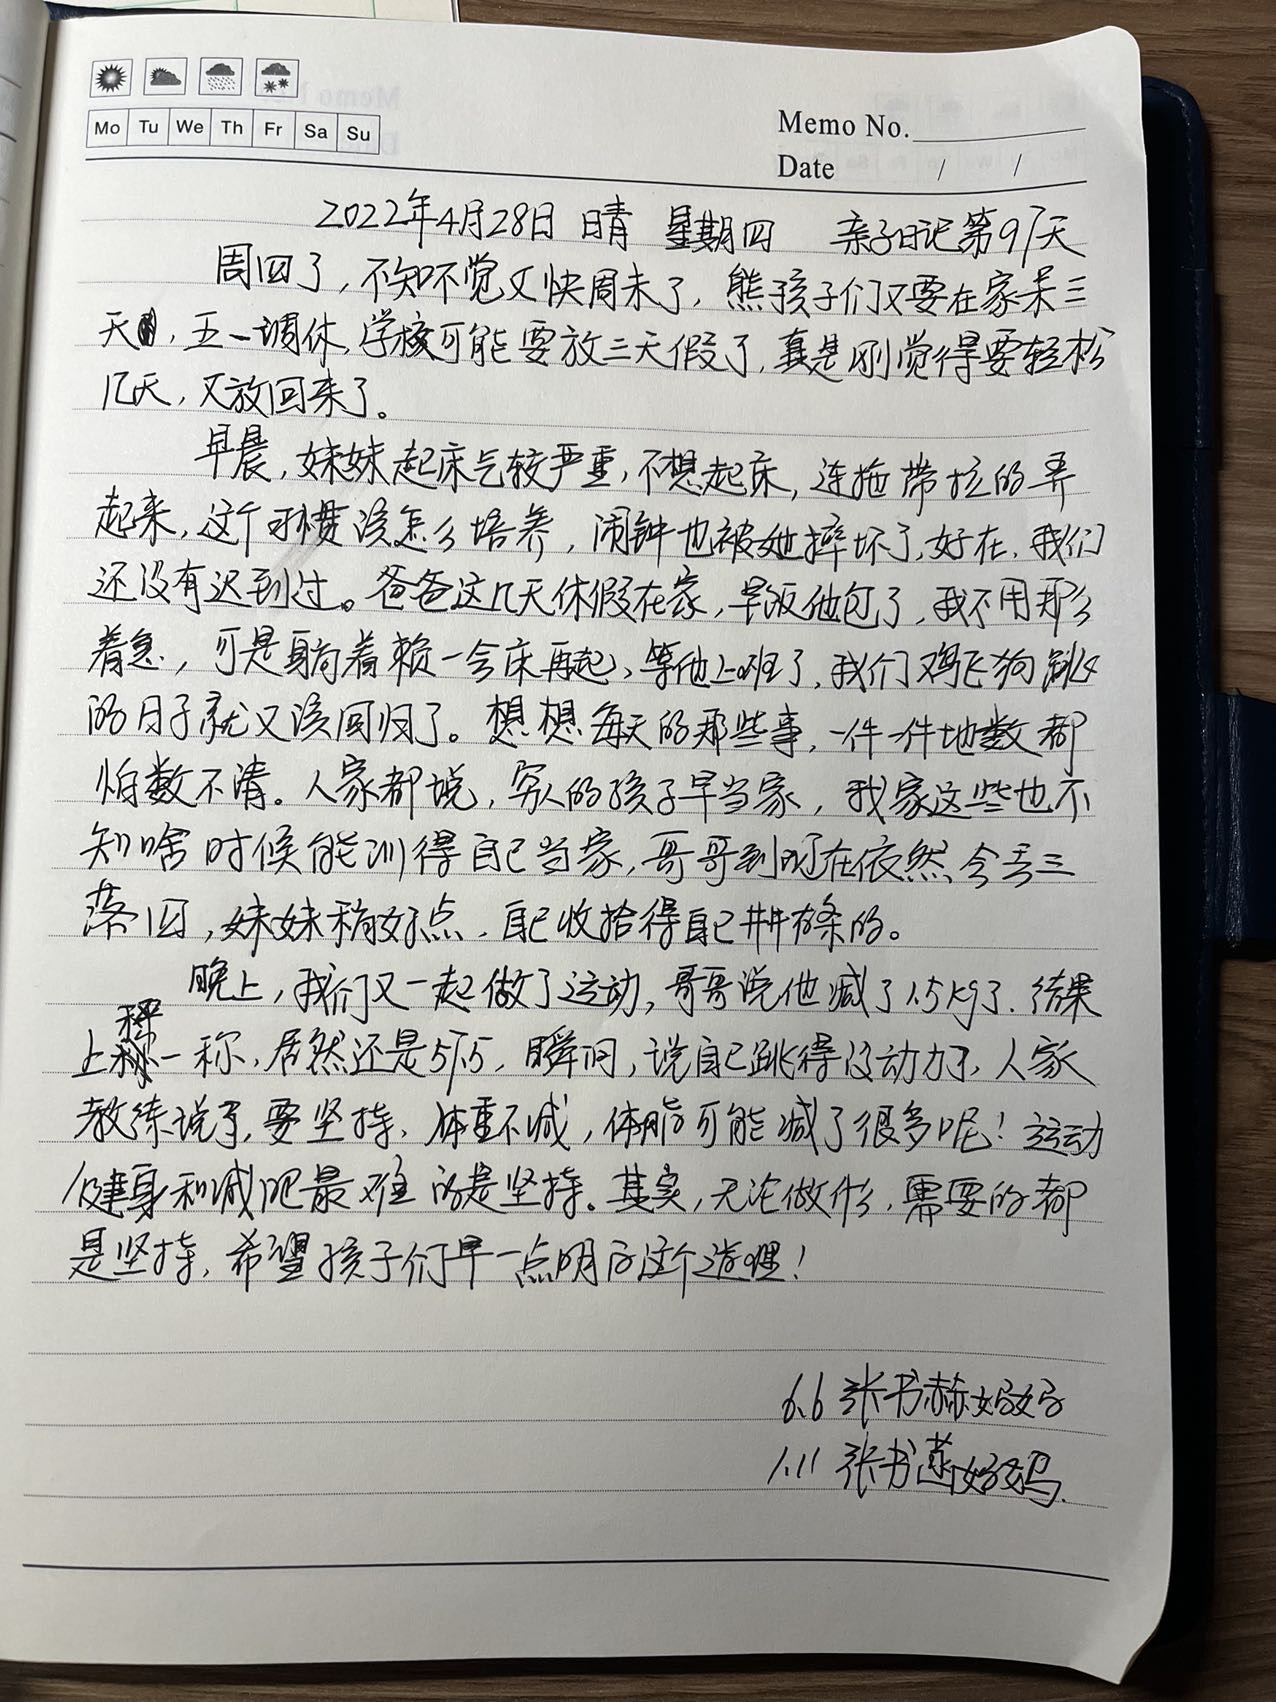 Mo Tu We Th Fr Sa Su
Memo No.
Date / /
2022年4月28日 晴 星期四 亲子日记第91天
周四了，不知不觉又快周末了，熊孩子们又要在家呆三
天，五一调休，学校可能要放三天假了，真是刚觉得要轻松
几天，又放回来了。
早晨，妹妹起床气较严重，不想起床，连拖带拉的弄
起来，这个习惯该怎么培养，闹钟也被她摔坏了，好在，我们
还没有迟到过。爸爸这几天休假在家，早饭他包了，我不用那么
着急，可是躺着赖一会床再起，等他上班了，我们鸡飞狗跳
的日子就又该回归了。想想每天的那些事，一件一件地数都
怕数不清。人家都说，穷人的孩子早当家，我家这些也不
知啥时候能训得自己当家，哥哥到现在依然今丢三
落四，妹妹稍好点，自己收拾得自己井井有条的。
晚上，我们又一起做了运动，哥哥说他减了1.5kg了，结果
上秤一称，居然还是55，瞬间，说自己跳得没动力了，人家
教练说了，要坚持，体重不减，体脂可能减了很多呢！运动
健身和减肥最难的是坚持。其实，无论做什么，需要的都
是坚持，希望孩子们早一点明白这个道理！
6.6 张书赫妈妈
1.11 张书燕妈妈